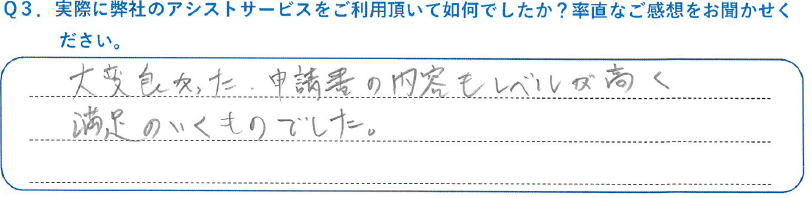 Q3. 実際に弊社のアシストサービスをご利用頂いて如何でしたか?率直なご感想をお聞かせく
ださい。
大変良かった.申請書の内容もレベルが高く
満足のいくものでした。